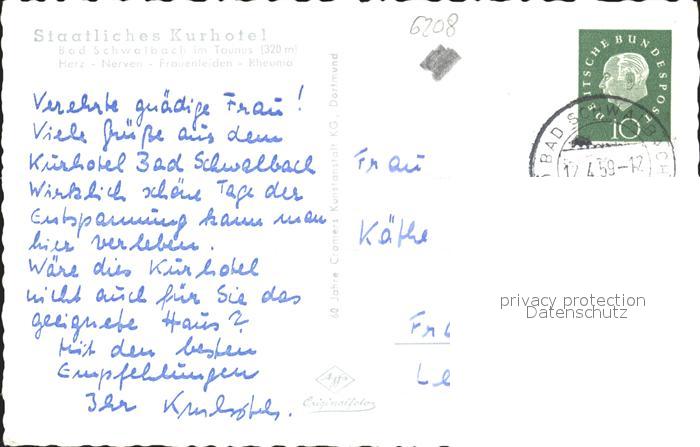 Staatliches Kurhotel
Bad Schwalbach im Taunus (320 m)
Herz - Nerven - Frauenleiden - Rheuma
6208
DEUTSCHE BUNDESPOST
10
BAD SCHWALBACH
12.4.59-12
Verehrte gnädige Frau!
Viele Grüße aus dem
Kurhotel Bad Schwalbach
Wirklich schöne Tage der
Entspannung kann man
hier verleben.
Wäre dies Kurhotel
nicht auch für Sie das
geeignete Haus?
Mit den besten
Empfehlungen
Ihr
60 Jahre Cramers Kunstanstalt KG., Dortmund
Frau
Käthe
privacy protection
Datenschutz
Agfa
Originalfoto